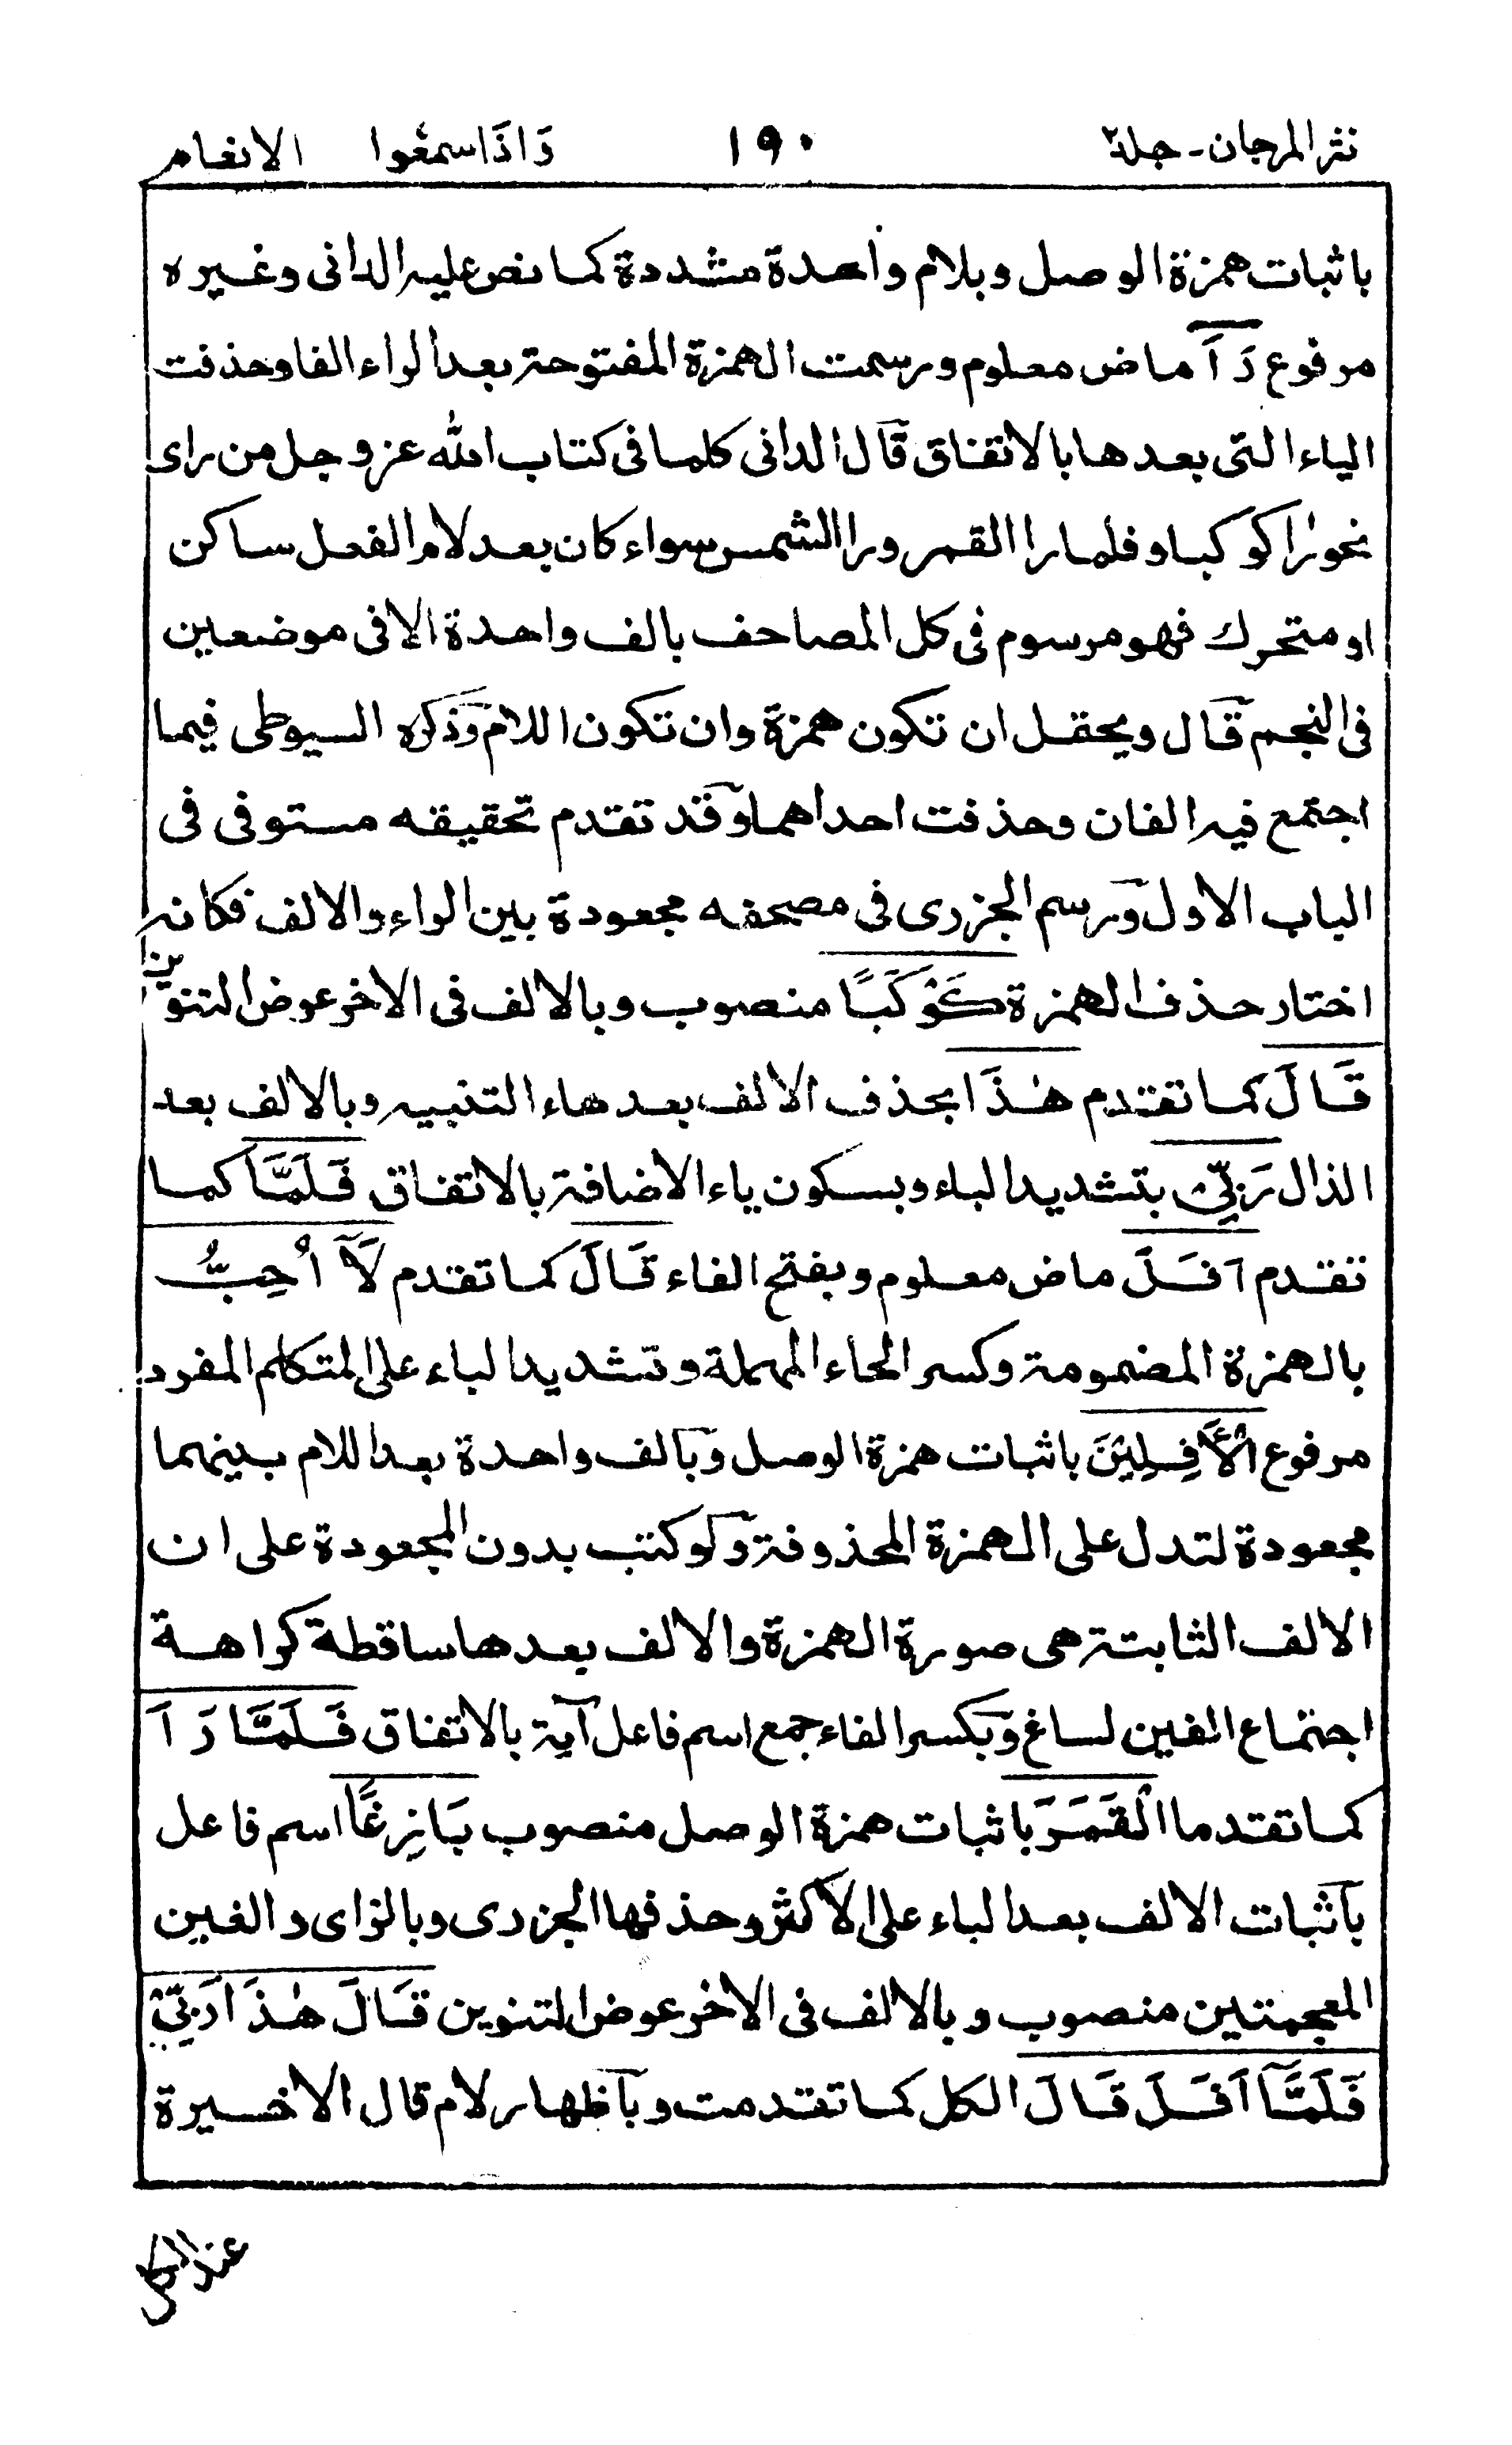 نثر المرجان - جلد٢ ١٩٠ وَاذَا سمعُوا الانعام
باثبات همزة الوصل وبلام واحدة مشددة كما نص عليه الدانى وغيره
مرفوع رَاَ ماض معلوم ورسمت الهمزة المفتوحة بعد الراء الفا وحذفت
الياء التى بعدها بالاتفاق قال الدانى كلما فى كتاب الله عز وجل من راى
نحو را كوكبا و فلما را القمر و را الشمس سواء كان بعد لام الفعل ساكن
او متحرك فهو مرسوم فى كل المصاحف بالف واحدة الا فى موضعين
فى النجم قال ويحتمل ان تكون همزة وان تكون اللام وذكره السيوطى فيما
اجتمع فيه الفان وحذفت احداهما وقد تقدم تحقيقه مستوفى فى
الباب الاول ورسم الجزرى فى مصحفه مجعودة بين الراء والالف فكانه
اختار حذف الهمزة كَوْكَبًا منصوب وبالالف فى الاخر عوض التنوين
قَالَ كما تقدم هٰذَا بحذف الالف بعد هاء التنبيه وبالالف بعد
الذال رَبِّيْ بتشديد الباء وبسكون ياء الاضافة بالاتفاق فَلَمَّا كما
تقدم اَفَلَ ماض معلوم وبفتح الفاء قَالَ كما تقدم لَآ اُحِبُّ
بالهمزة المضمومة وكسر الحاء المهملة وتشديد الباء على المتكلم المفرد
مرفوع الْاٰفِلِيْنَ باثبات همزة الوصل وبالف واحدة بعد اللام بينهما
مجعودة لتدل على الهمزة المحذوفة ولو كتب بدون المجعودة على ان
الالف الثابتة هى صورة الهمزة والالف بعدها ساقطة كراهة
اجتماع الفين لساغ وبكسر الفاء جمع اسم فاعل آية بالاتفاق فَلَمَّا رَاَ
كما تقدما الْقَمَرَ باثبات همزة الوصل منصوب بَازِغًا اسم فاعل
باثبات الالف بعد الباء على الاكثر وحذفها الجزرى وبالزاى والغين
المعجمتين منصوب وبالالف فى الاخر عوض التنوين قَالَ هٰذَا رَبِّيْ
فَلَمَّآ اَفَلَ قَالَ الكل كما تقدمت وباظهار لام قال الاخيرة
عند الكل